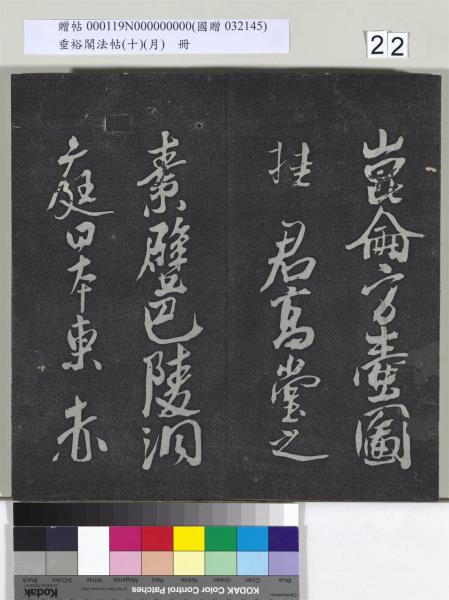 贈帖 000119N000000000(國贈 032145)
垂裕閣法帖(十)(月) 冊
22
崑侖方壺圖
挂君高堂之
素壁巴陵洞
庭日本東赤
Blue Cyan Green Yellow Red Magenta White 3/Color Black
Kodak
KODAK Color Control Patches